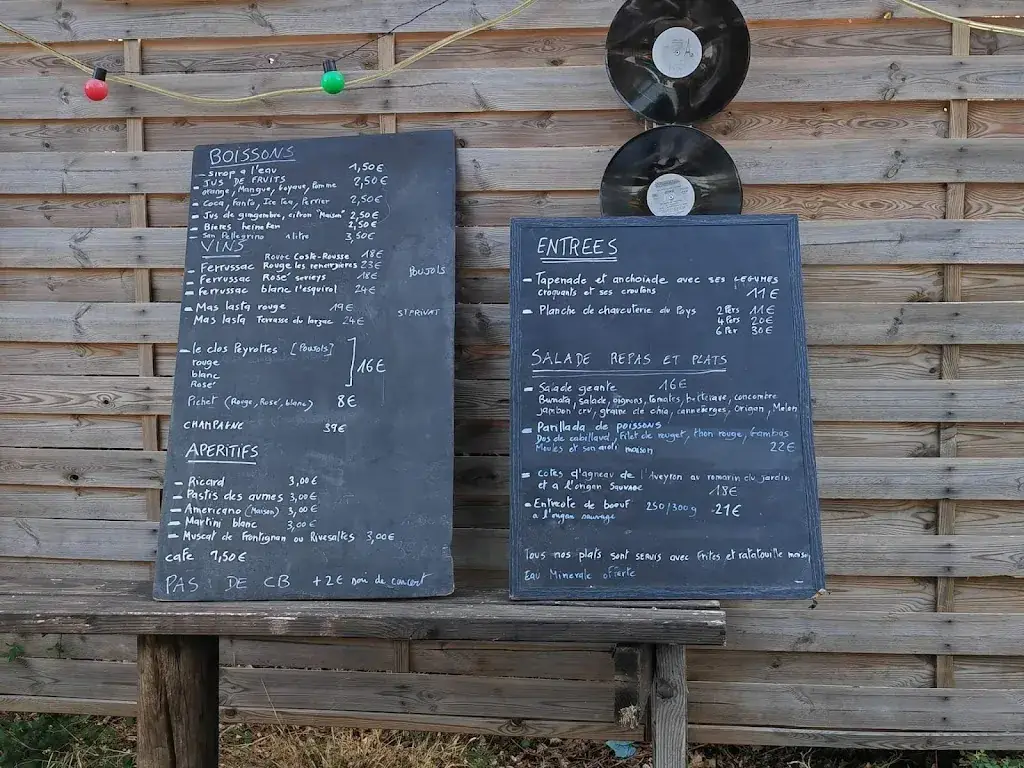 BOISSONS
- sirop a l'eau 1,50€
- JUS DE FRUITS 2,50€
orange, Mangue, Goyave, Pomme
- Coca, Fanta, Ice tea, Perrier 2,50€
- Jus de gingembre, citron "Maison" 2,50€
- Bieres heineken 2,50€
- San Pellegrino 1 litre 3,50€
VINS
Rouge Coste-Rousse 18€
- Ferrussac Rouge les 23€
- Ferrussac Rosé 18€
- Ferrussac blanc l'esquirol 24€
POUJOLS
- Mas lasta rouge 19€
Mas lasta Terrasse du larzac 24€
ST PRIVAT
- le clos Peyrottes [Poujols]
rouge
blanc
Rosé
16€
Pichet (Rouge, Rosé, blanc) 8€
CHAMPAGNE 39€
APERITIFS
- Ricard 3,00€
- Pastis des 3,00€
- Americano (Maison) 3,00€
- Martini blanc 3,00€
- Muscat de Frontignan ou Rivesaltes 3,00€
cafe 1,50€
PAS DE CB +2€ de concert
ENTREES
- Tapenade et anchoiade avec ses LEGUMES
croquants et ses croutons 11€
- Planche de charcuterie du Pays 2 Pers 11€
4 Pers 20€
6 Per 30€
SALADE REPAS ET PLATS
- Salade geante 16€
Burrata, salade, oignons, tomates, betterave, concombre
jambon cru, graine de chia, canneberges, Origan, Melon
- Parillada de poissons
Dos de cabillaud, Filet de rouget, thon rouge, Gambas
Moules et son aioli maison 22€
- cotes d'agneau de l'Aveyron au romarin du jardin
et a l'origan Sauvage 18€
- Entrecote de boeuf 250/300g 21€
a l'origan sauvage
Tous nos plats sont servis avec frites et ratatouille maison
Eau Minerale offerte